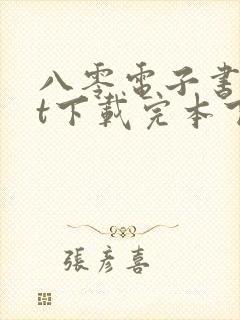 八零電子書
t下載完本
張彥喜